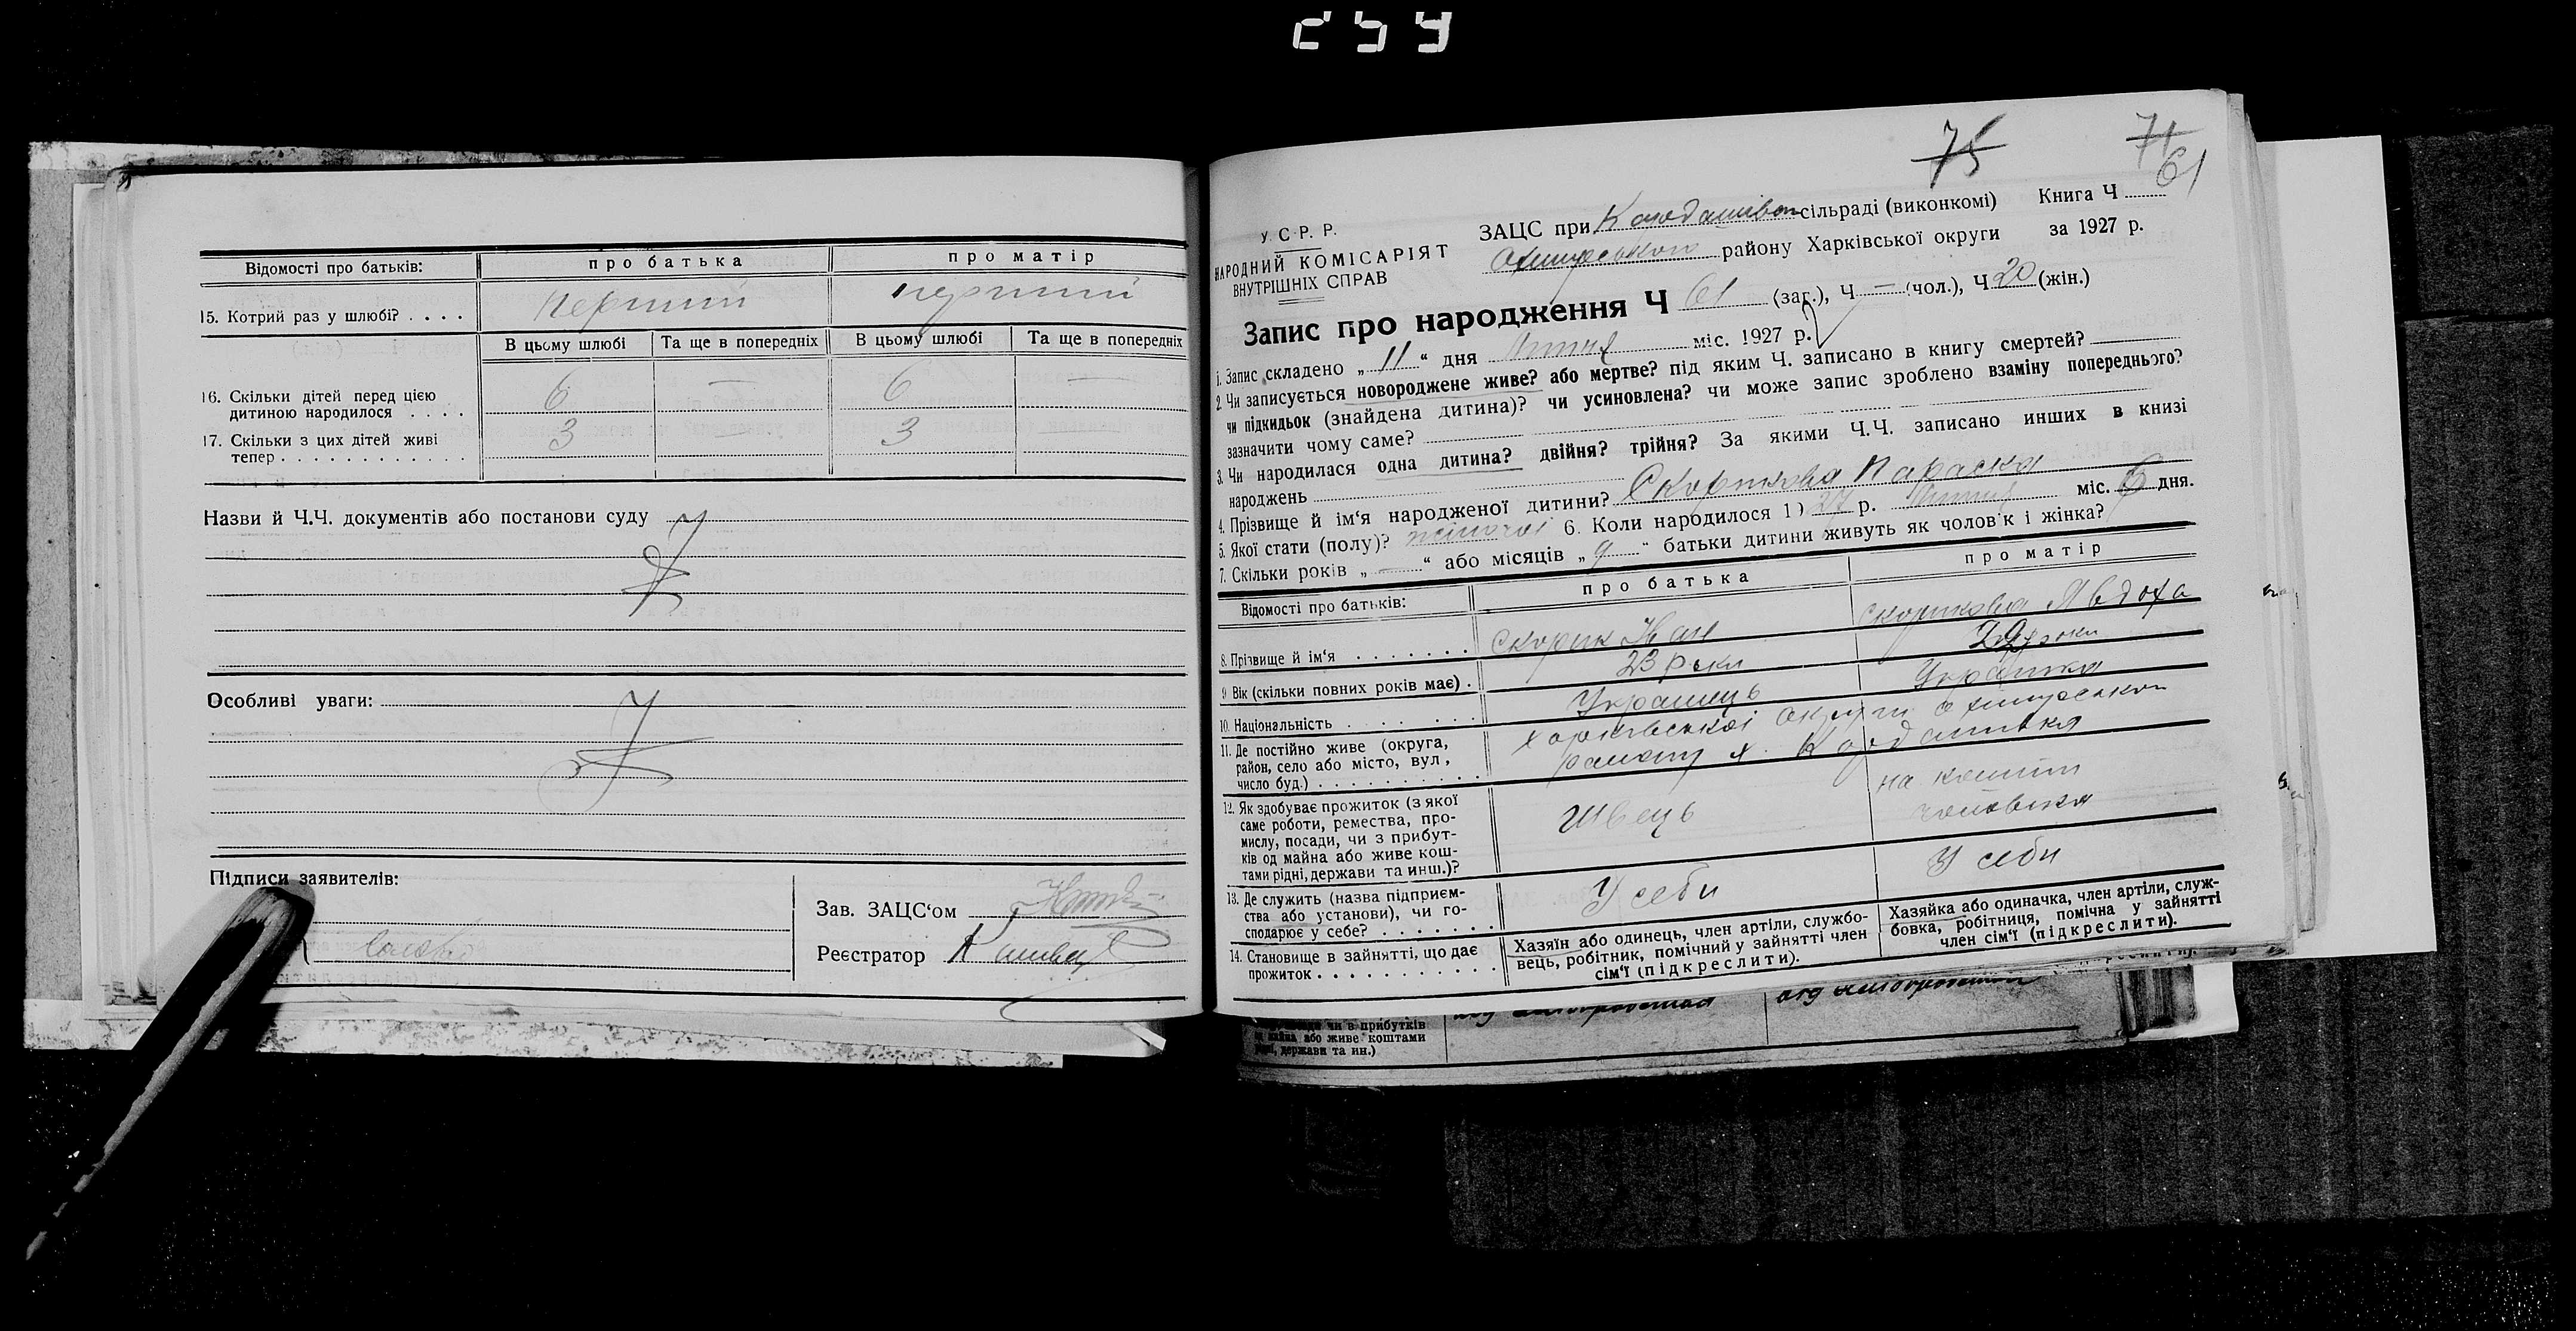 259
Відомості про батьків:
про батька
про матір
15. Котрий раз у шлюбі? . . . .
перший
перший
В цьому шлюбі
Та ще в попередніх
В цьому шлюбі
Та ще в попередніх
16. Скільки дітей перед цією
дитиною народилося . . . .
6 — 6 —
17. Скільки з цих дітей живі
тепер . . . . . . . . . . . .
3 — 3
Назви й Ч.Ч. документів або постанови суду
Особливі уваги:
Підписи заявителів:
Зав. ЗАЦС‘ом
Реєстратор
75
71
61
У. С. Р. Р.
НАРОДНИЙ КОМІСАРІЯТ
ВНУТРІШНІХ СПРАВ
ЗАЦС при сільраді (виконкомі)
Книга Ч
району Харківської округи
за 1927 р.
Запис про народження Ч 61 (заг.), Ч — (чол.), Ч 20 (жін.)
1. Запис складено „ 11 “ дня міс. 1927 р.
2. Чи записується новороджене живе? або мертве? під яким Ч. записано в книгу смертей?
чи підкидьок (знайдена дитина)? чи усиновлена? чи може запис зроблено взаміну попереднього?
зазначити чому саме?
3. Чи народилася одна дитина? двійня? трійня? За якими Ч.Ч. записано инших в книзі
народжень
4. Прізвище й ім‘я народженої дитини? Скорикова Параска
5. Якої стати (полу)? жіночої 6. Коли народилося 1) 27 р. міс. 6 дня.
7. Скільки років „ — “ або місяців „ 9 “ батьки дитини живуть як чолов‘к і жінка?
Відомості про батьків:
про батька
про матір
8. Прізвище й ім‘я . . . . . . .
Скорик Іван
Скорикова Явдоха
9. Вік (скільки повних років має) .
23 роки
роки
10. Національність . . . . . . .
Українець
Українка
11. Де постійно живе (округа,
район, село або місто, вул.,
число буд.) . . . . . . . . . .
Харківської округи
району х.
12. Як здобуває прожиток (з якої
саме роботи, ремества, про-
мислу, посади, чи з прибут-
ків од майна або живе кош-
тами рідні, держави та инш.)?
Швець
на кошти
чоловіка
13. Де служить (назва підприєм-
ства або установи), чи го-
сподарює у себе? . . . . . . .
У себи
У себи
14. Становище в зайнятті, що дає
прожиток . . . . . . . . . . .
Хазяїн або одинець, член артілі, службо-
вець, робітник, помічний у зайнятті член
сім‘ї (підкреслити).
Хазяйка або одиначка, член артіли, служ-
бовка, робітниця, помічна у зайнятті
член сім‘ї (підкреслити).
чи в прибутків
або живе коштами
держави та ин.)